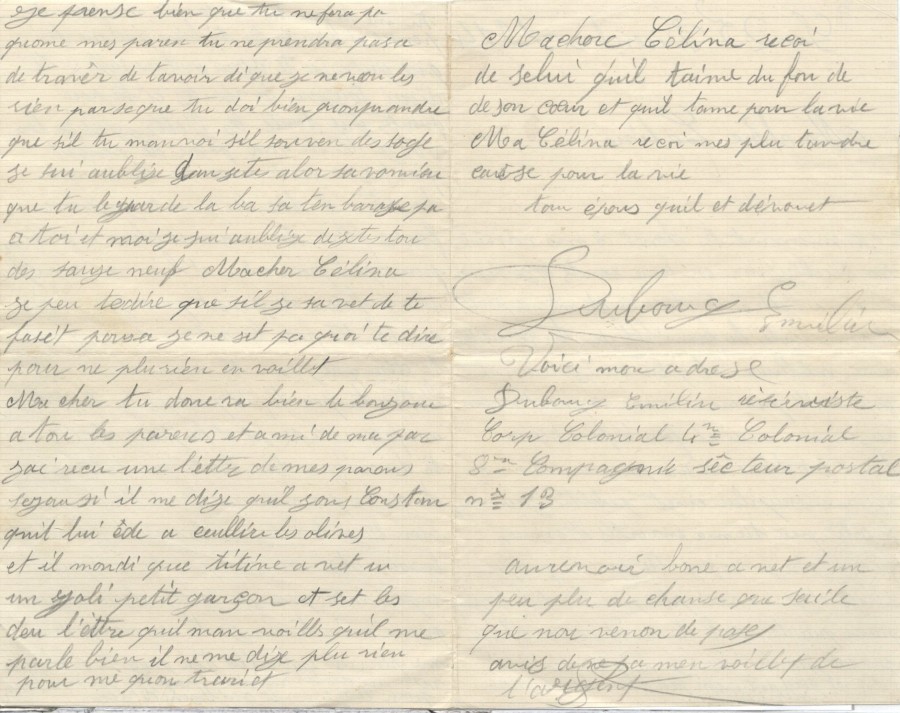 je panse bien que tu ne fera pa
quome mes paren tu ne prendra pas a
de travêr de tavoir di que je ne veu les
rien parseque tu doi bien quonprandre
que sil tu manvoi sil souven des
je sui aublixe dan alor sa
que tu le garde la ba sa ten pa
a toi et moi je sui aublixe de tou
des neuf Macher Célina
je peu te dire que sil je savet de te
je ne set pa quoi te dire
pour ne plu rien en voillet
Ma cher tu donera bien le bonjour
a tou les parens et ami de ma par
jai recu une l'éttre de mes parans
il me dize quil Constan
quil lui ède a ceullire les olives
et il mondi que titine a vet u
un yoli petit garçon et set les
deu l'éttre quil man voille quil me
parle bien il ne me dize plu rien
pour me
Machere Célina recoi
de selui quil taime du fon de
de son cœur et quil tame pour la vie
Ma Célina recoi mes plu tandre
pour la vie
ton épous quil et dévouet
Dubourg Emilien
Voici mon adrese
Dubourg Emilien réserviste
Corp Colonial 4me Colonial
8me Compagnie sécteur postal
n° 13
aurevoir bone a net et un
peu plu de chanse que sele
que nou venon de pase
avis de ne pa men voillet de
l'argent